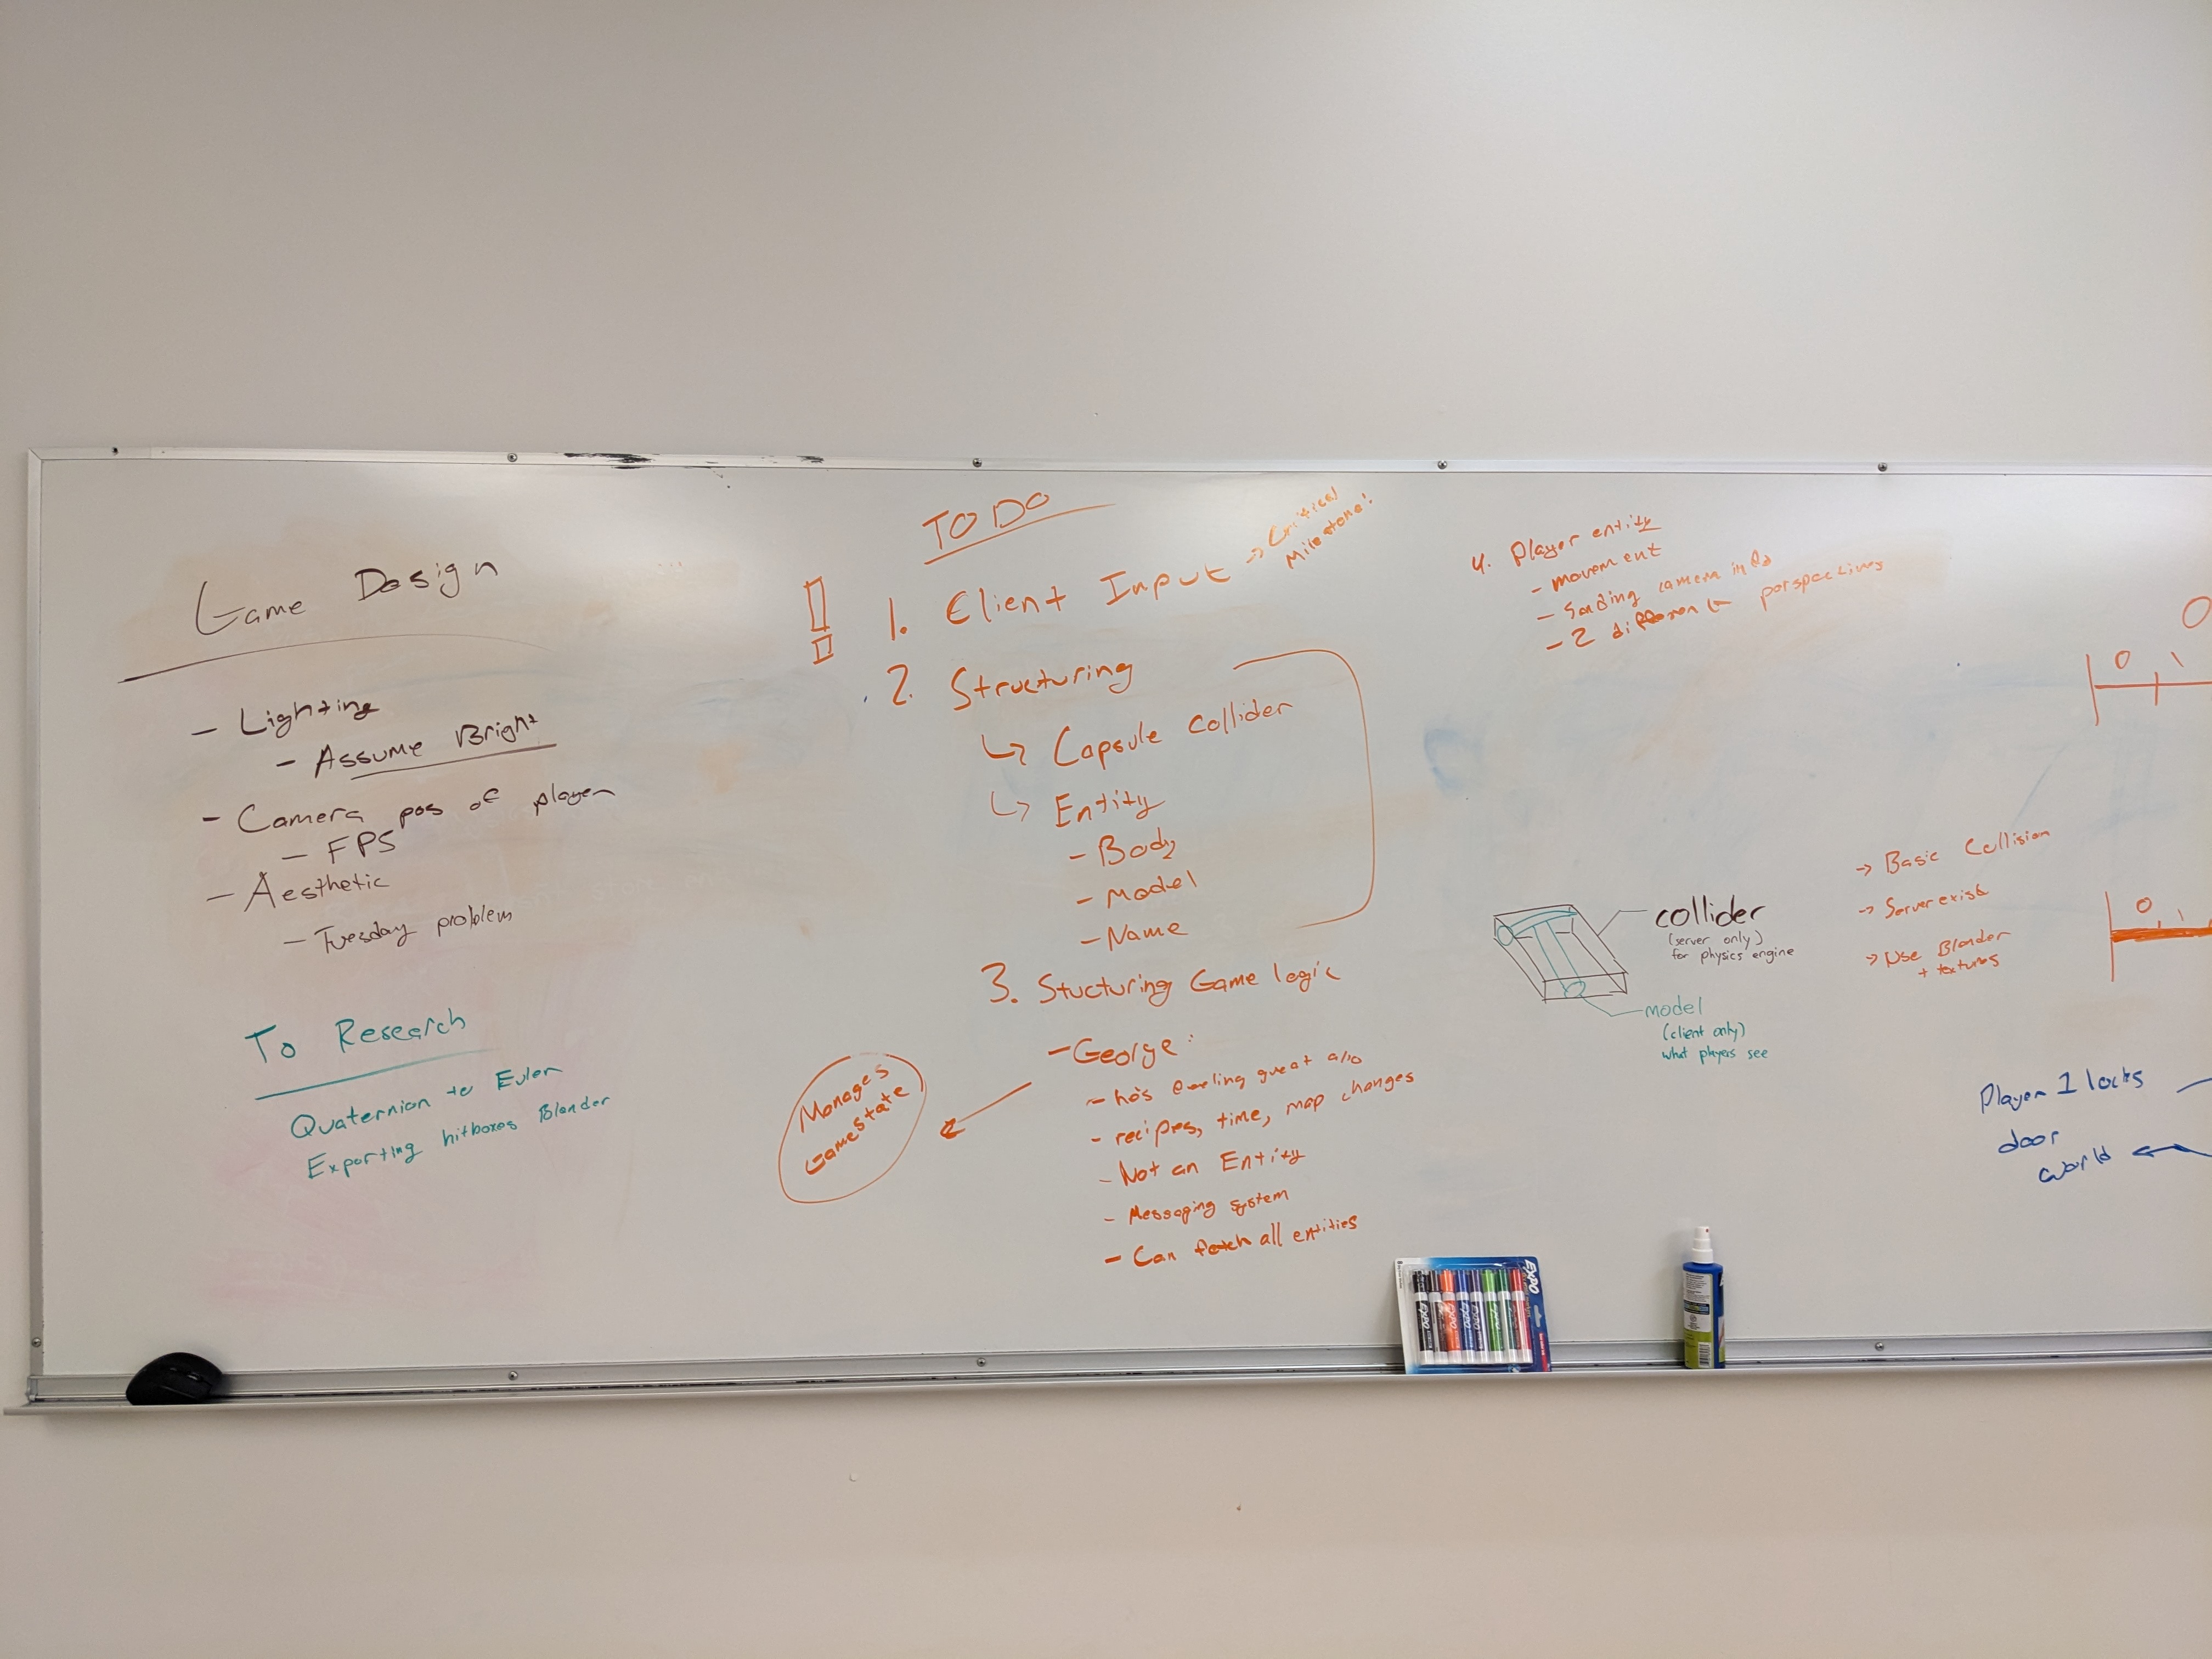 Game Design
- Lighting
- Assume Bright
- Camera pos of player
- FPS
- Aesthetic
- Tuesday problem
To Research
Quaternion to Euler
Exporting hitboxes Blender
TO DO
1. Client Input → Critical
Milestone!
2. Structuring
↳ Capsule Collider
↳ Entity
- Body
- Model
- Name
3. Stucturing Game logic
- George:
- he's feeling great
- recipes, time, map changes
- Not an Entity
- Messaging system
- Can fetch all entities
Manages
Gamestate
4. Player entity
- movement
- Sending camera info
- 2 different perspectives
collider
(server only)
for physics engine
model
(client only)
what players see
→ Basic Collision
→ Server exist
→ Use Blender
+ textures
0
0
0
Player 1 locks
door
world
EXPO